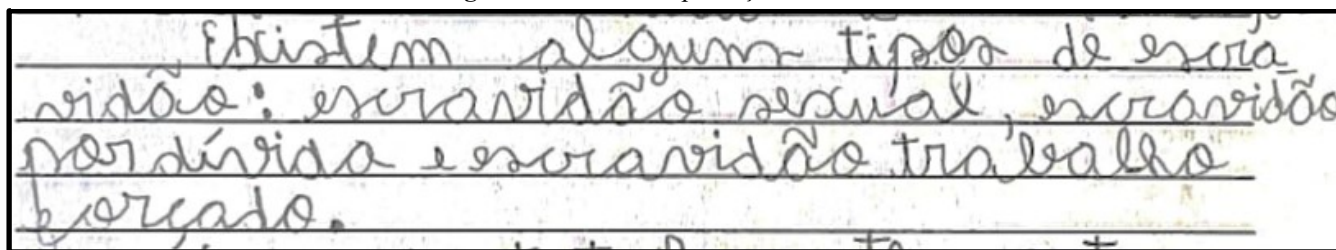 Existem alguns tipos de escra
vidão: escravidão sexual, escravidão
por dívida e escravidão trabalho
forçado.